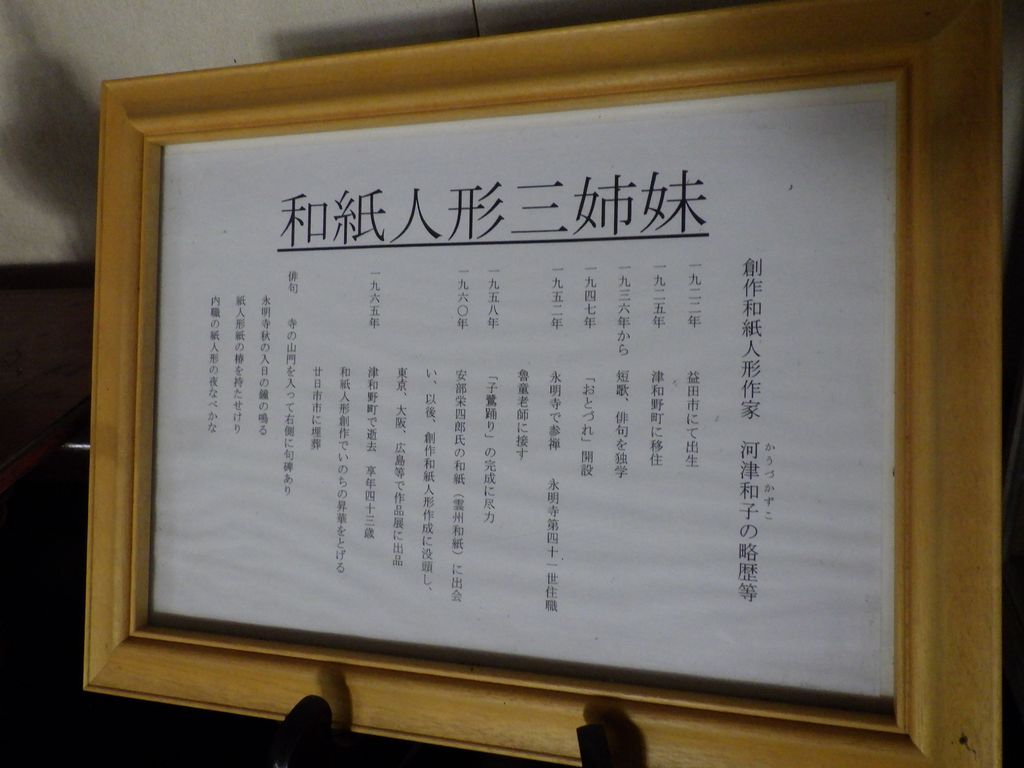 和紙人形三姉妹
創作和紙人形作家　河津和子の略歴等
かうづかずこ
一九二二年　益田市にて出生
一九二五年　津和野町に移住
一九三六年から　短歌、俳句を独学
一九四七年　「おとづれ」開設
一九五二年　永明寺で参禅　永明寺第四十一世住職
魯童老師に接す
一九五八年　「子鷺踊り」の完成に尽力
一九六〇年　安部栄四郎氏の和紙（雲州和紙）に出会
い、以後、創作和紙人形作成に没頭し、
東京、大阪、広島等で作品展に出品
一九六五年　津和野町で逝去　享年四十三歳
和紙人形創作でいのちの昇華をとげる
廿日市市に埋葬
俳句　寺の山門を入って右側に句碑あり
永明寺秋の入日の鐘の鳴る
紙人形紙の椿を持たせけり
内職の紙人形の夜なべかな